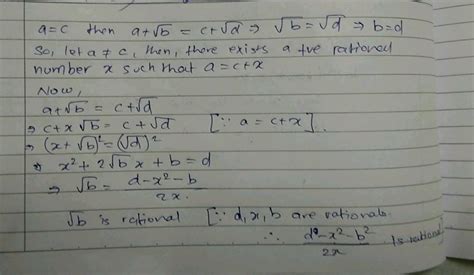 a=c then a+√b = c+√d ⇒ √b=√d ⇒ b=d
So, let a ≠ c, then, there exists a +ve rational
number x such that a=c+x
Now,
a+√b = c+√d
⇒ c+x √b = c+√d [∵ a = c+x].
⇒ (x+√b)² = (√d)²
⇒ x²+2√b x + b = d
⇒ √b = d-x²-b / 2x.
√b is rational [∵ d, x, b are rationals.
∴ d²-x²-b² / 2x is rational]